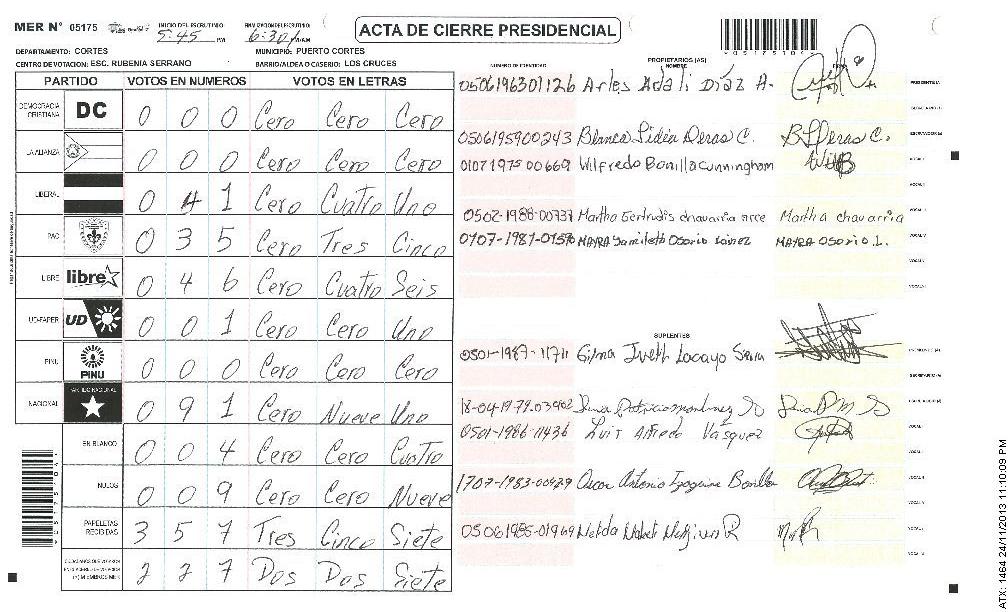 MER N° 05175
INICIO DEL ESCRUTINIO:
5:45 PM
6:30
ACTA DE CIERRE PRESIDENCIAL
DEPARTAMENTO: CORTES
MUNICIPIO: PUERTO CORTES
CENTRO DE VOTACION: ESC. RUBENIA SERRANO
BARRIO/ALDEA O CASERIO: LOS CRUCES
PARTIDO VOTOS EN NUMEROS VOTOS EN LETRAS
DEMOCRACIA CRISTIANA DC 0 0 0 Cero Cero Cero
LA ALIANZA 0 0 0 Cero Cero Cero
LIBERAL 0 4 1 Cero Cuatro Uno
PAC 0 3 5 Cero Tres Cinco
LIBRE libre 0 4 6 Cero Cuatro Seis
UD-FAPER UD 0 0 1 Cero Cero Uno
PINU PINU 0 0 0 Cero Cero Cero
NACIONAL PARTIDO NACIONAL 0 9 1 Cero Nueve Uno
EN BLANCO 0 0 4 Cero Cero Cuatro
NULOS 0 0 9 Cero Cero Nueve
PAPELETAS RECIBIDAS 3 5 7 Tres Cinco Siete
2 2 7 Dos Dos Siete
NUMERO DE IDENTIDAD
PROPIETARIOS (AS)
NOMBRE
0506196301126 Arles Adali Díaz A.
0506195900243 Blanca Lidia Deras C.
0107197500669 Wilfredo Bonilla Cunningham
0502-1988-00737 Martha Gertrudis chavarria arce Martha chavarria
MAYRA Osorio L.
SUPLENTES
0501-1987-11711
0501-1986-11436 Luis Alfredo Vásquez
Oscar Antonio
ATX: 1464 24/11/2013 11:10:09 PM